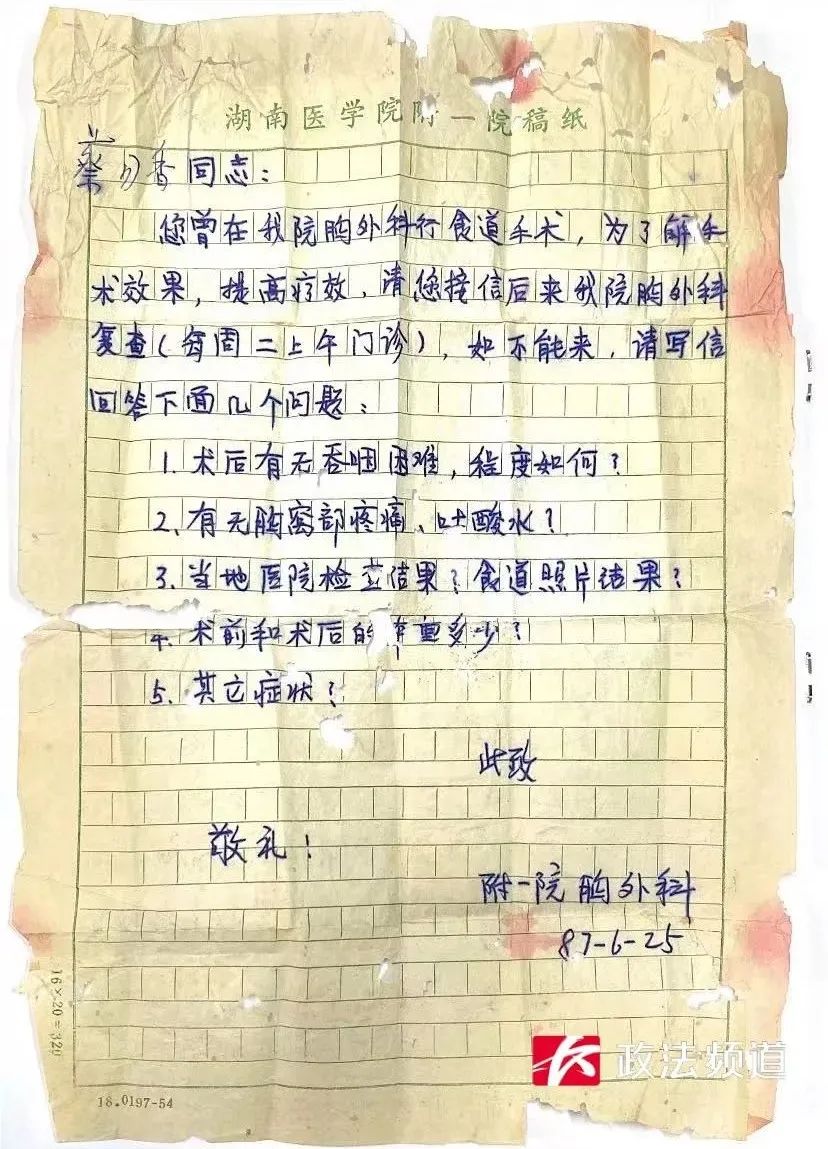 湖南医学院附一院稿纸
蔡月香同志：
您曾在我院胸外科行食道手术，为了解手
术效果，提高疗效，请您接信后来我院胸外科
复查（每周二上午门诊），如不能来，请写信
回答下面几个问题：
1. 术后有无吞咽困难，程度如何？
2. 有无胸窝部疼痛、吐酸水？
3. 当地医院检查结果？食道照片结果？
4. 术前和术后的体重多少？
5. 其它症状？
此致
敬礼！
附一院胸外科
87-6-25
16×20=320
18.0197-54
政法频道